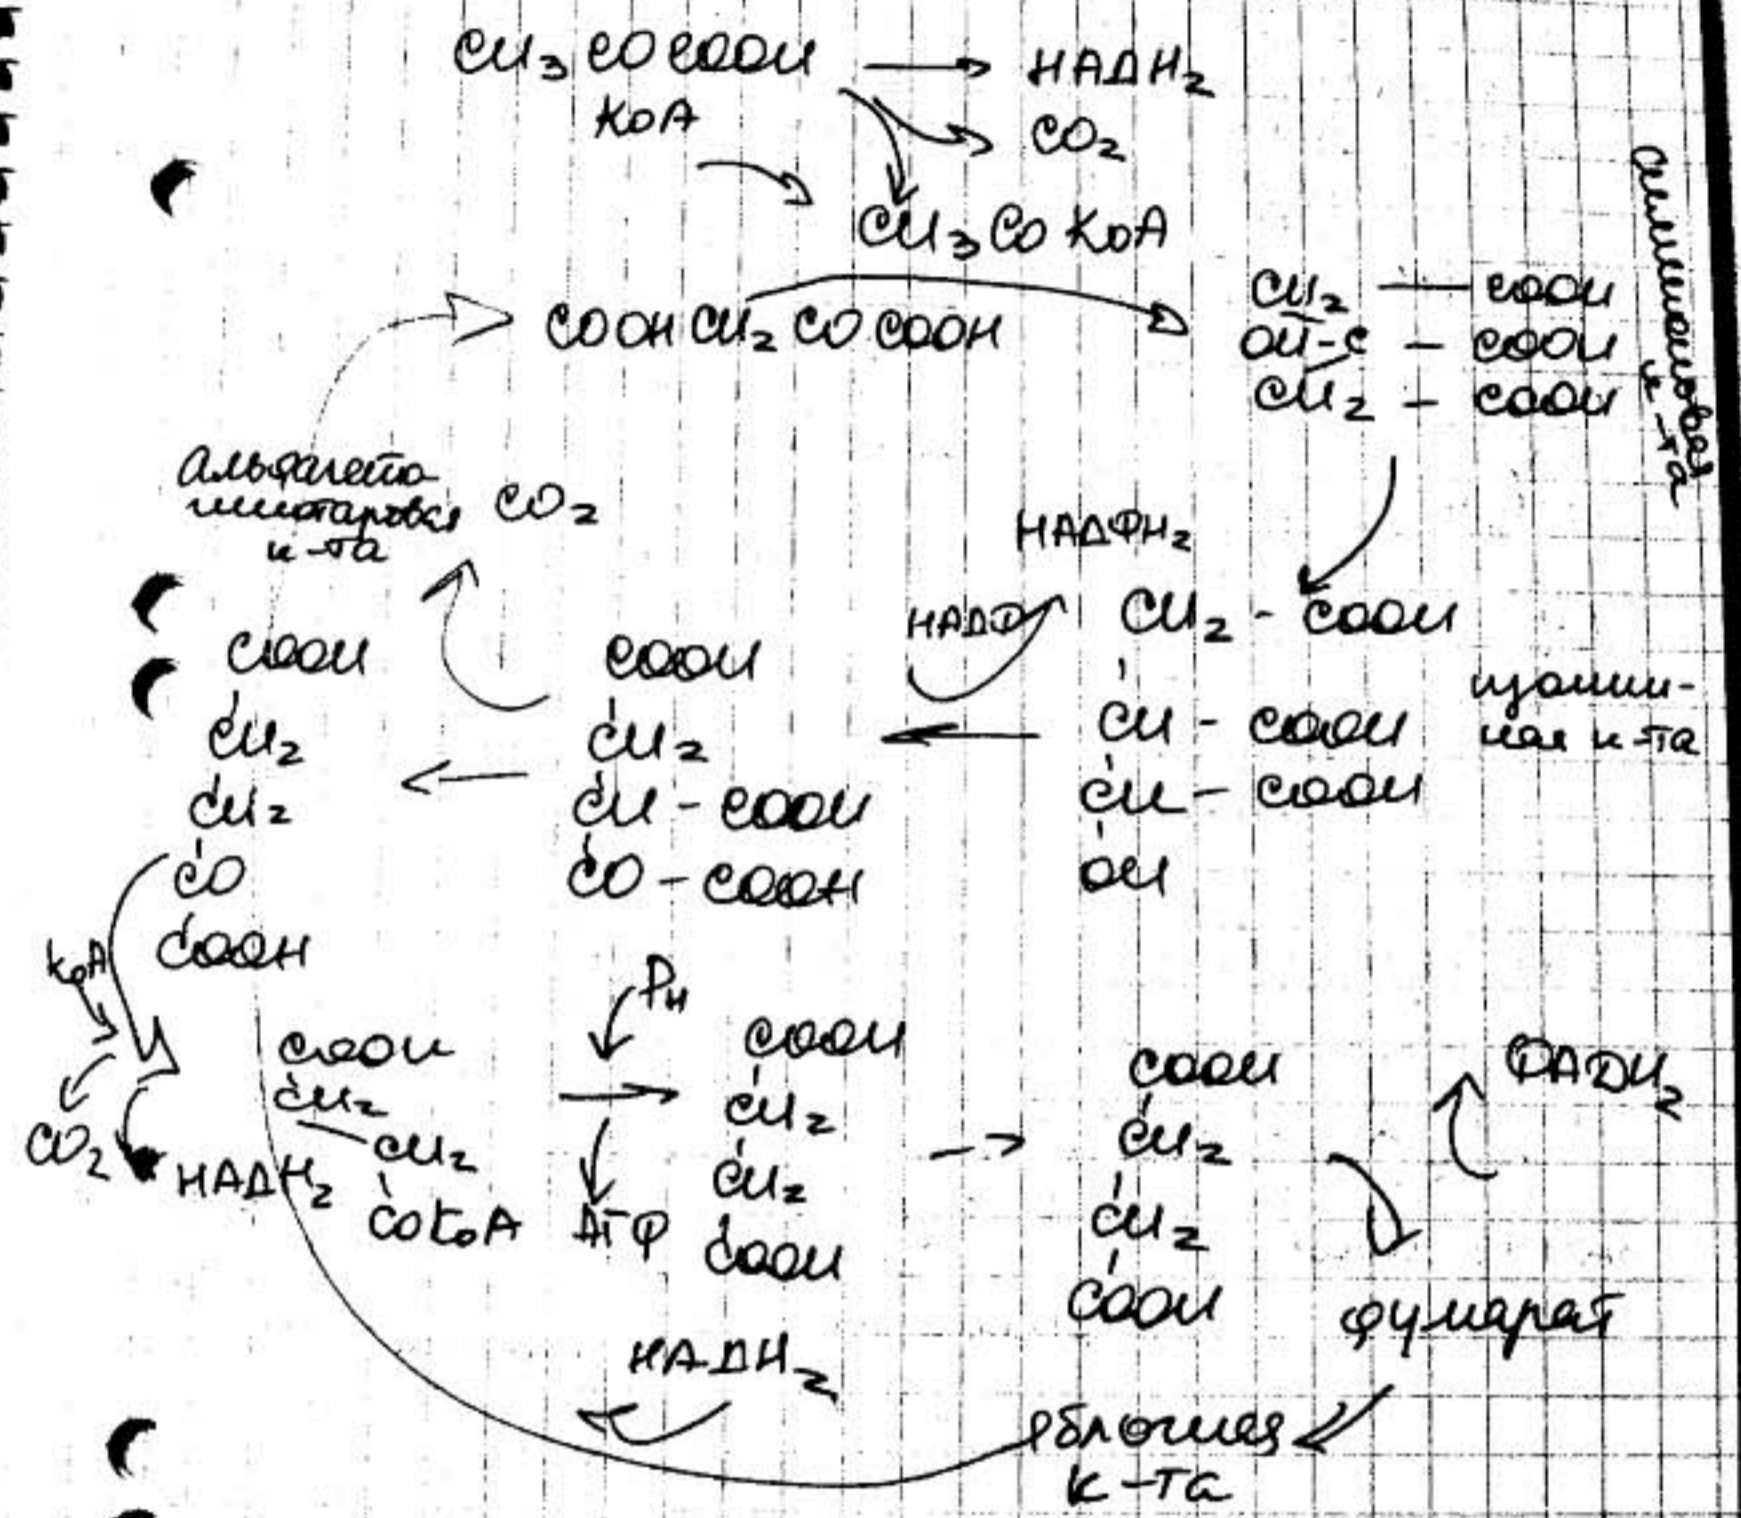 CH₃COCOOH → НАДH₂
КоА
CO₂
CH₃COКоА
COOHCH₂COCOOH
CH₂ — COOH
OH-C - COOH
CH₂ - COOH
лимоновая
к-та
Альфакето
глютаровая
к-та
CO₂
НАДФH₂
НАДФ
CH₂ - COOH
CH - COOH
CH - COOH
OH
изолимон-
ная к-та
COOH
CH₂
CH - COOH
CO - COOH
COOH
CH₂
CH₂
CO
COOH
КоА
CO₂
НАДH₂
COOH
CH₂
CH₂
COКоА
Рн
АТФ
COOH
CH₂
CH₂
COOH
COOH
CH₂
CH₂
COOH
ФАДH₂
фумарат
яблочная
к-та
НАДH₂